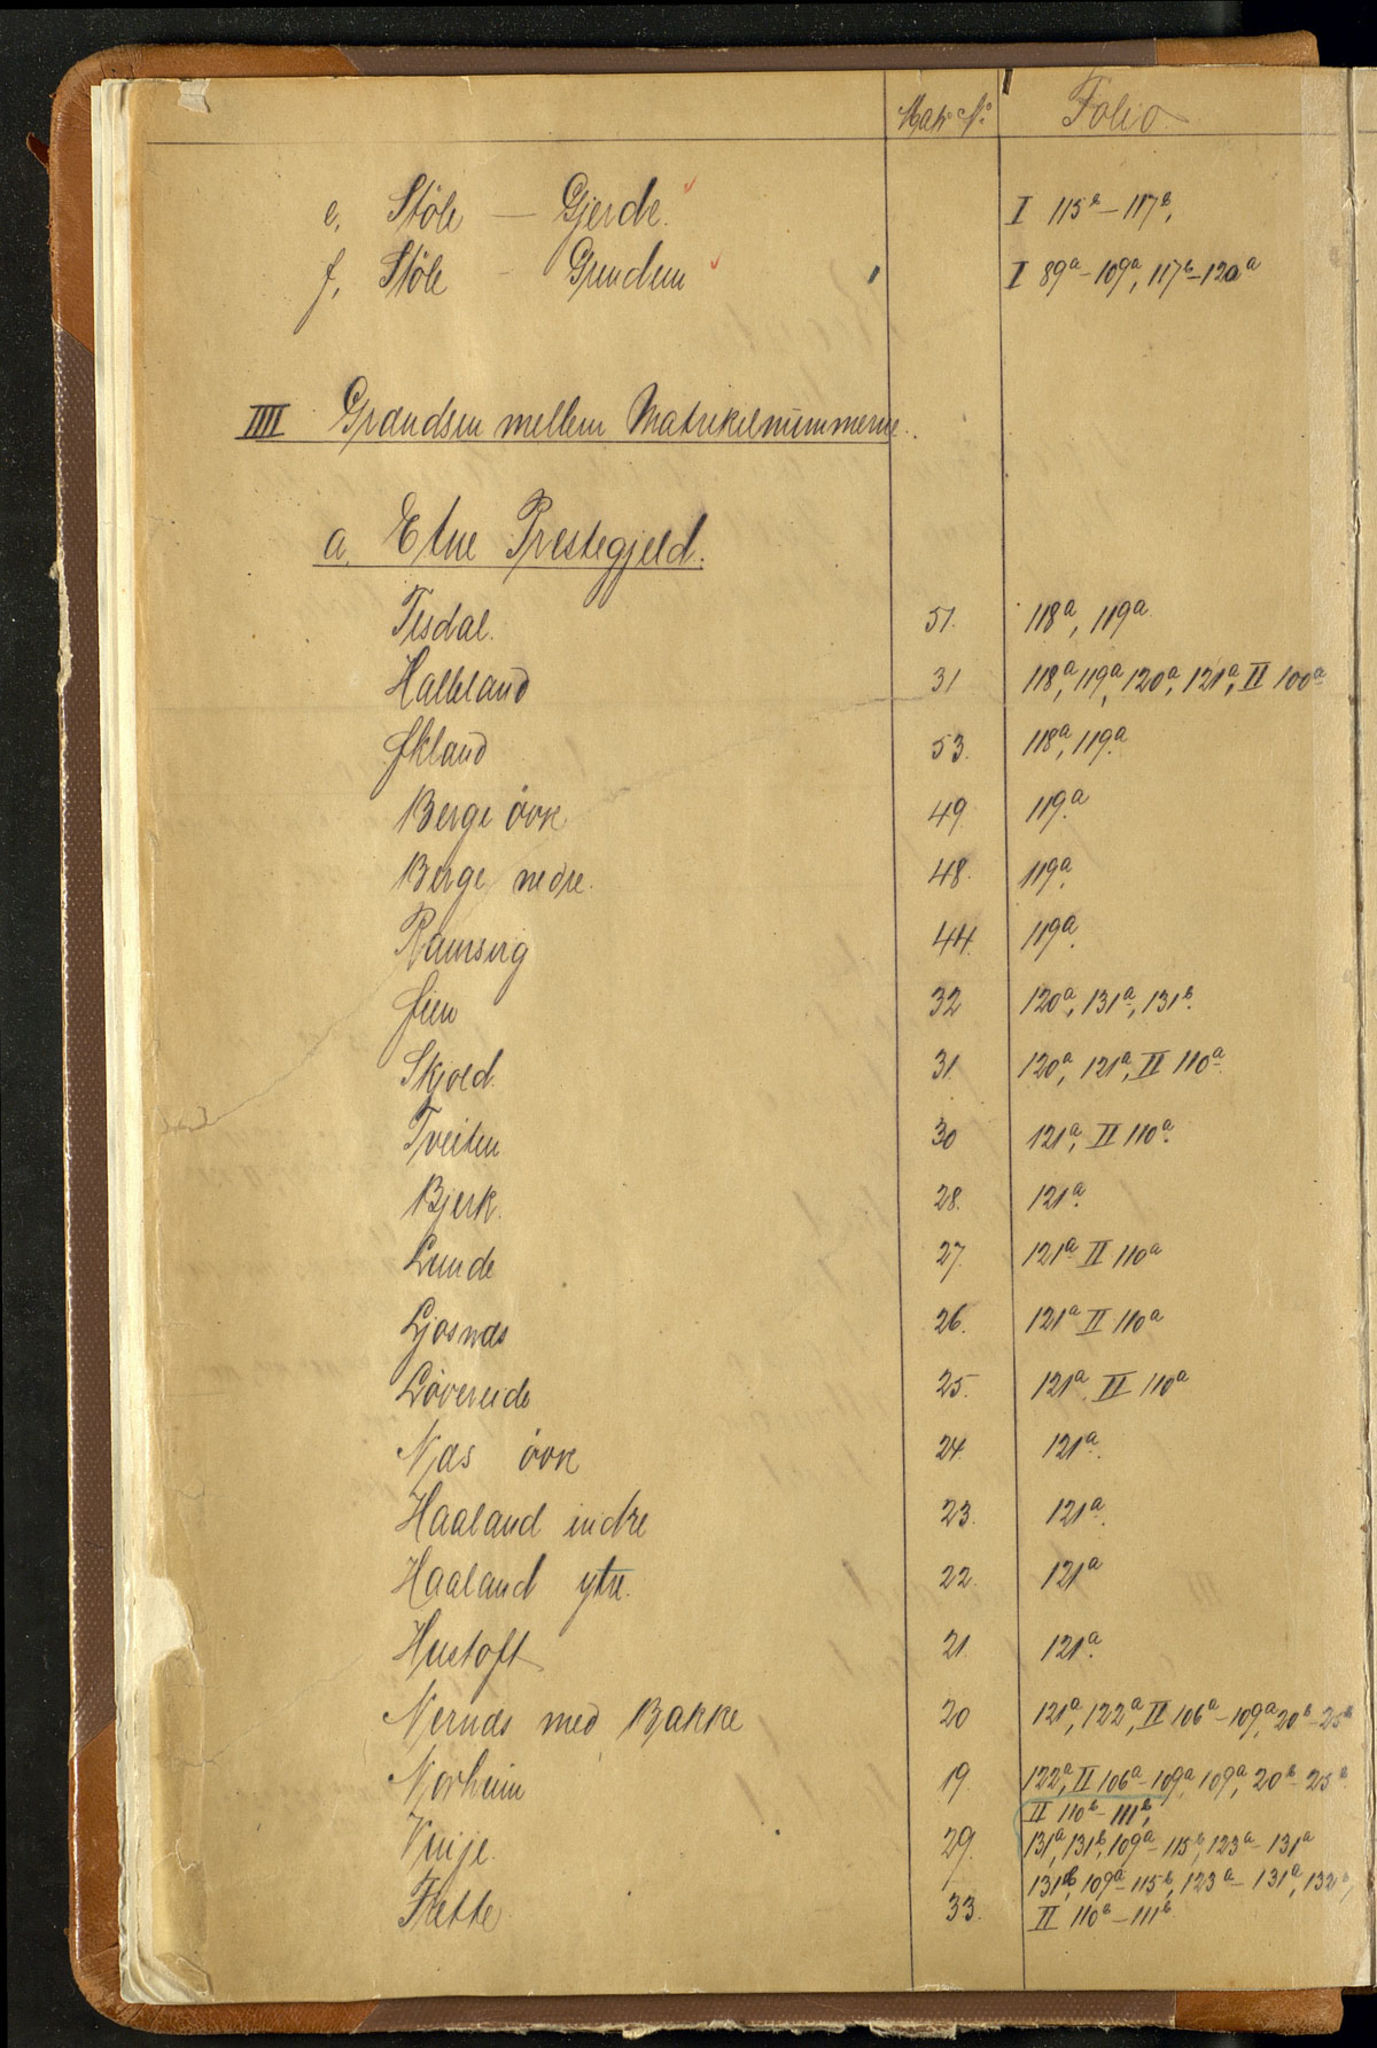 Matr No Folio
e. Støle — Gjerde. I 115b – 117b,
f. Støle – Grindem I 89a – 109a, 117b – 120a
IIII Grændsen mellem Matrikelnummerne.
a. Etne Prestegjeld.
Tesdal. 51. 118a, 119a
Halleland 31 118a, 119a, 120a, 121a, II 100a
Økland 53. 118a, 119a.
Berge øvre 49 119a.
Berge nedre. 48. 119a.
Ramsvig 44. 119a.
Øien 32 120a, 131a, 131b.
Skjold. 31. 120a, 121a, II 110a.
Tveiten 30 121a, II 110a.
Bjerk. 28. 121a.
Lunde 27. 121a II 110a
Ljosnæs 26. 121a II 110a
Løvereide 25. 121a. II 110a
Næs øvre 24. 121a.
Haaland indre 23. 121a.
Haaland ytre. 22. 121a
Hustoft 21. 121a.
Nernæs med Bakke 20 121a, 122a, II 106a – 109a, 20b – 25b
Norheim 19. 122a, II 106a – 109a, 109a, 20b – 25b
II 110b – 111b,
Vinje. 29. 131a, 131b, 109a – 115b, 123a – 131a
131b, 109a – 115b, 123a – 131a, 132b,
Frette. 33. II 110b – 111b